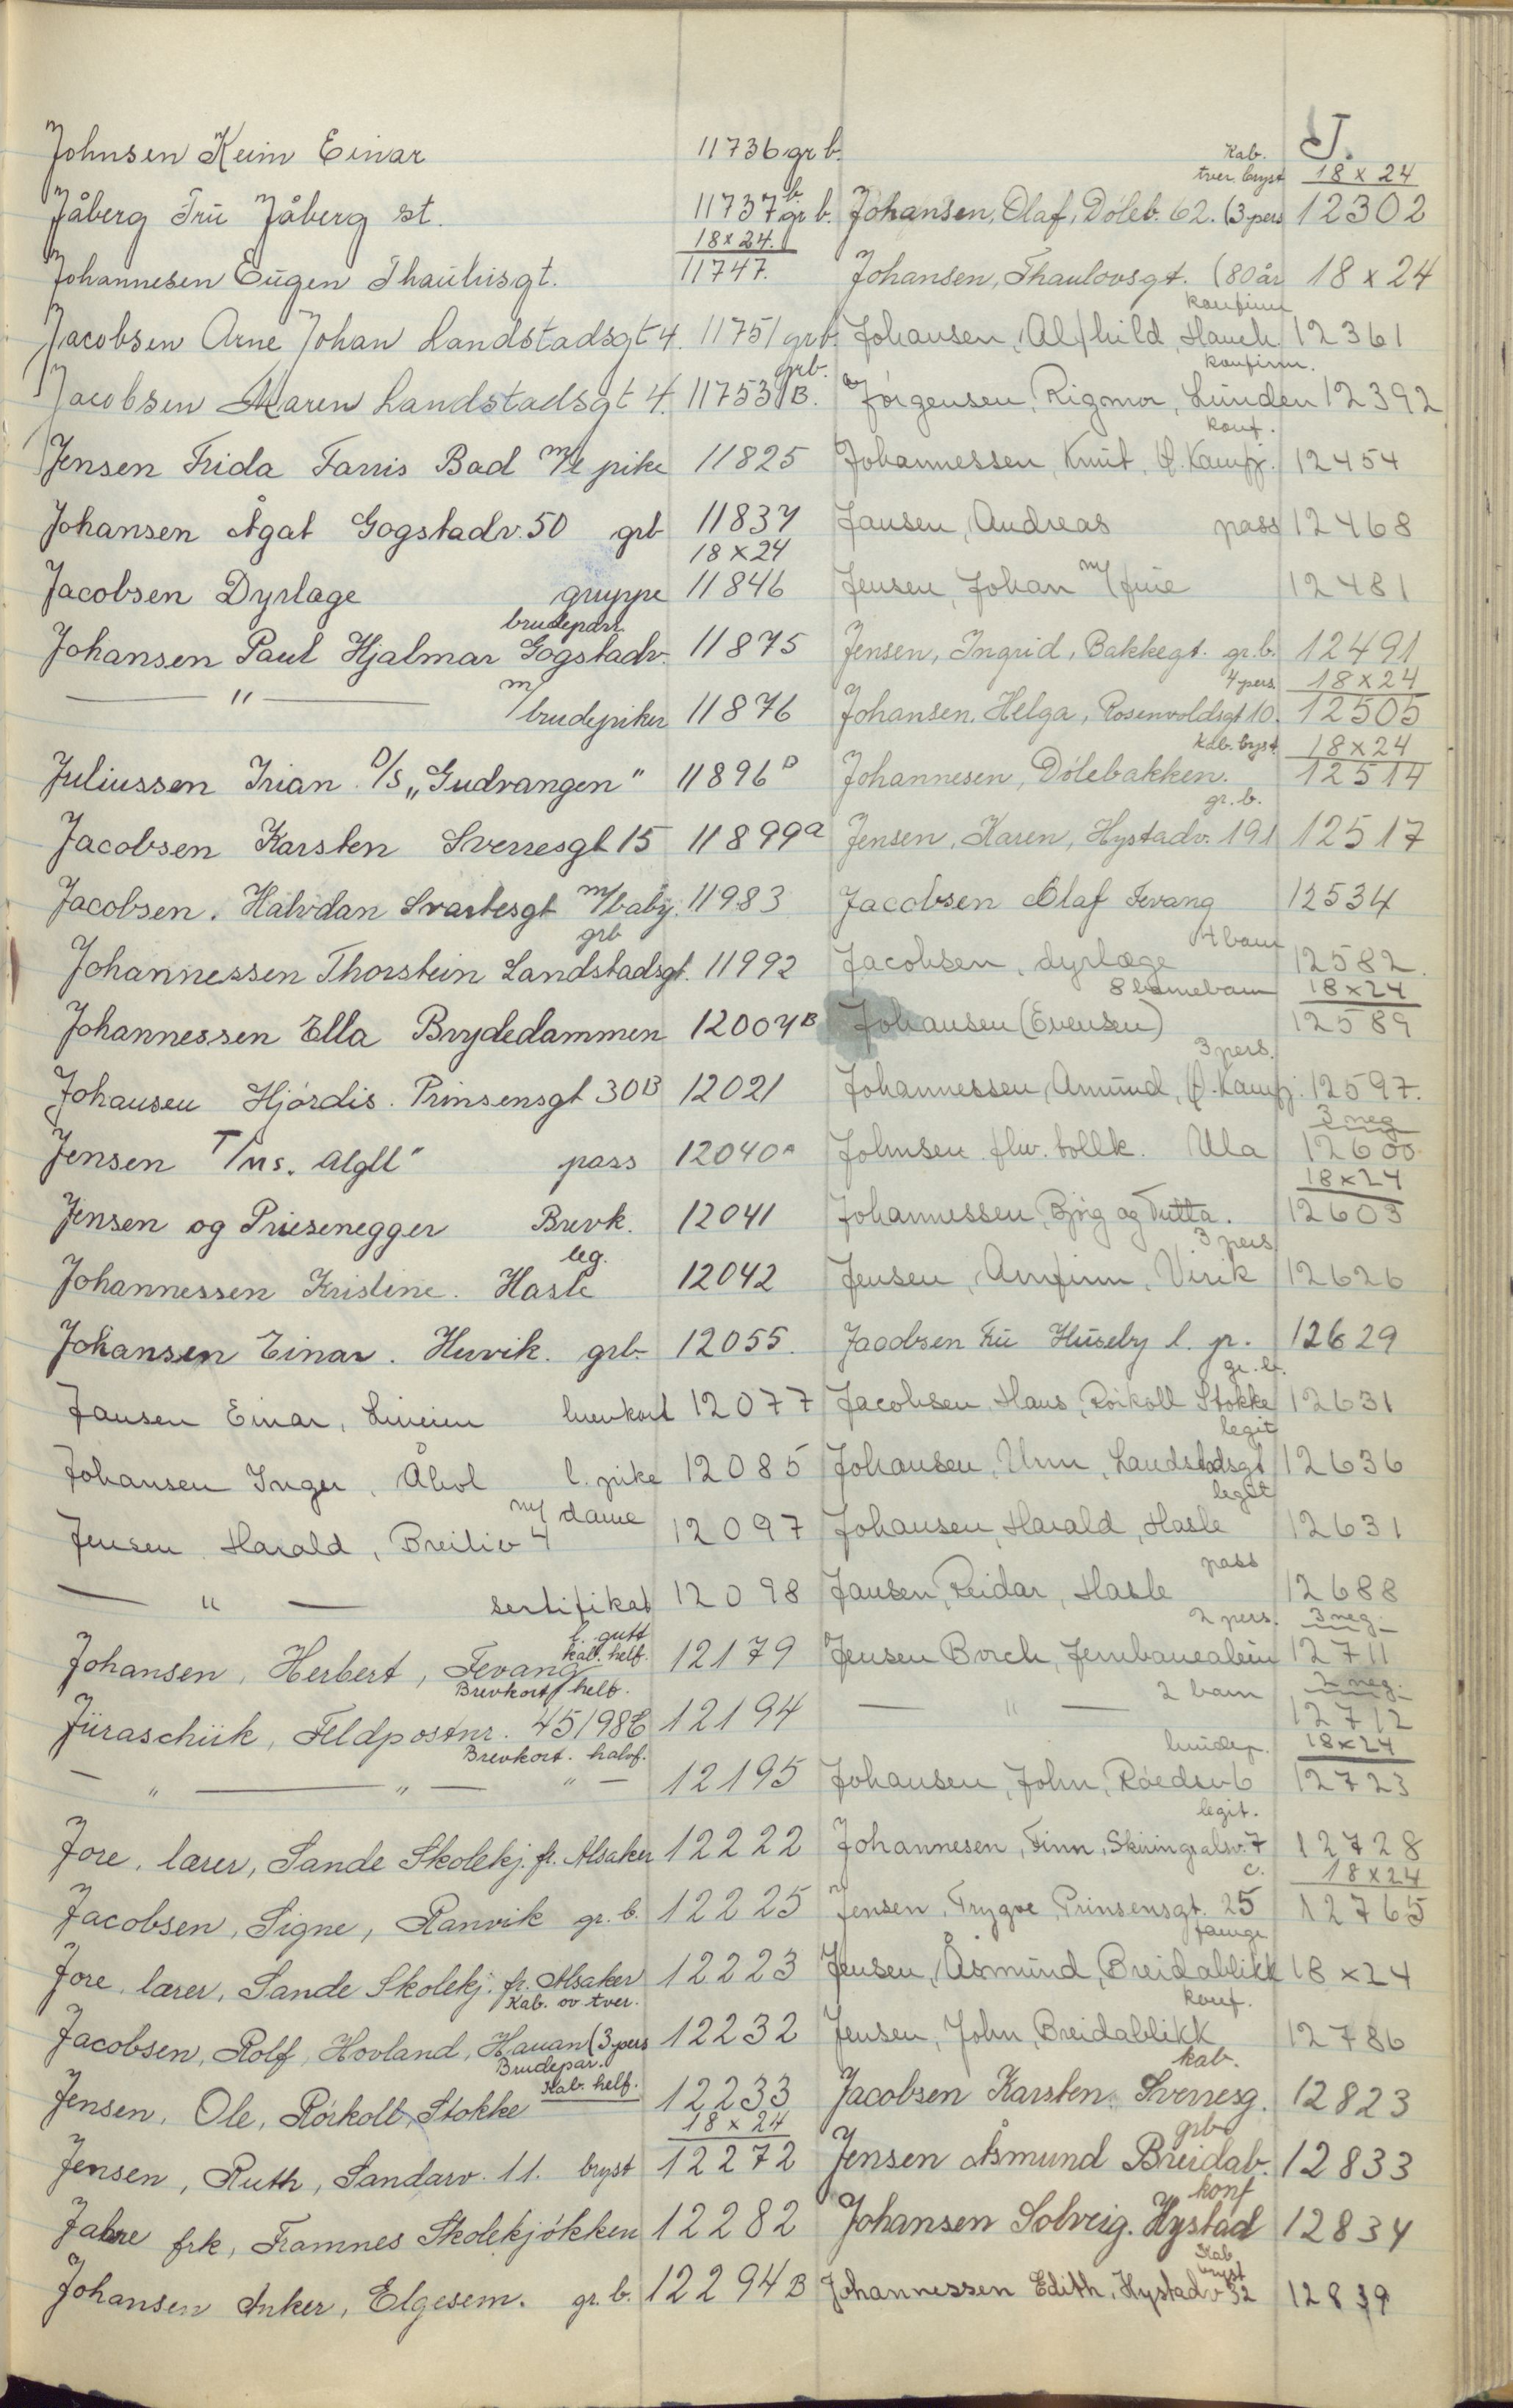 J.
Johnsen Keim Einar 11736 gr b.
Jåberg Fru Jåberg st. 11737 b gr b.
18 x 24
Johannesen Eugen 11747.
Jacobsen Arne Johan Landstadsgt 4. 11751 grb.
Jacobsen Maren Landstadsgt 4. 11753 B. grb.
Jensen Frida Farris Bad m/l pike 11825
Johansen Ågat Gogstadv. 50 grb 11834
18 x 24
Jacobsen Dyrlage gruppe 11846
brudeparr.
Johansen Paul Hjalmar Gogstadv. 11875
— " — m/brudepiker 11876
Juliussen Irian D/S „Gudvangen" 11896 D
Jacobsen Karsten Sverresgt 15 11899 a
Jacobsen. Halvdan Svartesgt m/baby. 11983
grb
Johannessen Thorstein Landstadsgt. 11992
Johannessen Ella Brydedammen 12004 B
Johansen Hjørdis. Prinsensgt 30B 12021
Jensen T/ms. pass 12040 a
Jensen og Priesenegger Brevk. 12041
leg.
Johannessen Kristine. Hasle 12042
Johansen Einar. grb. 12055.
Jansen Einar, brevkort 12077
Johansen Inger, l. pike 12085
Jensen Harald, Breiliv 4 m/ dame 12097
— " — sertifikat 12098
l. gutt
kab. helf.
Johansen, Herbert, Fevang 12179
Brevkort helf.
Jüraschük, Feldpostnr. 45198E 12194
Brevkort. halvf.
— " — " — " — 12195
Jore, lærer, Sande Skolekj. fr. Alsaker 12222
Jacobsen, Signe, Ranvik gr. b. 12225
Jore, lærer, Sande Skolekj. fr. Alsaker 12223
Kab. ov tver.
Jacobsen, Rolf, Hovland, Hauan (3 pers 12232
Brudepar.
Kab. helf.
Jensen, Ole, Rørkoll, Stokke 12233
18 x 24
Jensen, Ruth, Sandarv. 11. bryst 12272
Jahre frk, Framnes Skolekjøkken 12282
Johansen Anker, Elgesem. gr. b. 12294 B
Kab.
tver. bryst 18 x 24
Johansen, Olaf, Döleb. 62. (3 pers 12302
Johansen, Thaulovsgt. (80 år 18 x 24
konfirm
Johansen, Alfhild, Hauch 12361
konfirm.
Jørgensen, Rigmor, Lunden 12392
konf.
Johannessen, Knut, Q. Kampj. 12454
Jansen, Andreas pass 12468
Jensen, Johan m/ frue 12481
Jensen, Ingrid, Bakkegt. gr. b. 12491
4 pers. 18 x 24
Johansen, Helga, Rosenvoldsgt 10. 12505
Kab. bryst 18 x 24
Johannesen, Dölebakken. 12514
gr. b.
Jensen, Karen, Hystadv. 191 12517
Jacobsen Olaf Fevang 12534
4 barn
Jacobsen, dyrlæge 12582.
8 barnebarn 18 x 24
Johansen (Evensen) 12589
3 pers.
Johannessen, Amund, Q. Kampj. 12597.
3 neg
Johnsen fhv. tollk. Ula 12600
18 x 24
Johannessen, Bjørg og Tutta. 12603
3 pers
Jensen, Arnfinn, Virik 12626
Jacobsen Fru Huseby l. p. 12629
gr. b.
Jacobsen, Hans, Rörkoll Stokke 12631
legit
Johansen, Unn, Landstadsgt 12636
legit
Johansen, Harald, Hasle 12631
pass
Jansen, Reidar, Hasle 12688
2 pers. 3 neg.
Jensen Borch, Jernbanealeen 12711
2 barn 2 neg.
— " — 12712
brudep. 18 x 24
Johansen, John, Råedsv 6 12723
legit.
Johannesen, Finn, Skiringsalsv. 7 12728
c. 18 x 24
Jensen, Trygve, Prinsensgt. 25 12765
Jensen, Åsmund, Breidablikk 18 x 24
konf.
Jensen, John, Breidablikk 12786
kab.
Jacobsen Karsten. Sverresg. 12823
grb
Jensen Åsmund Breidab. 12833
konf
Johansen Solveig. Hystad 12834
Kab
bryst
Johannessen Edith, Hystadv 32 12839